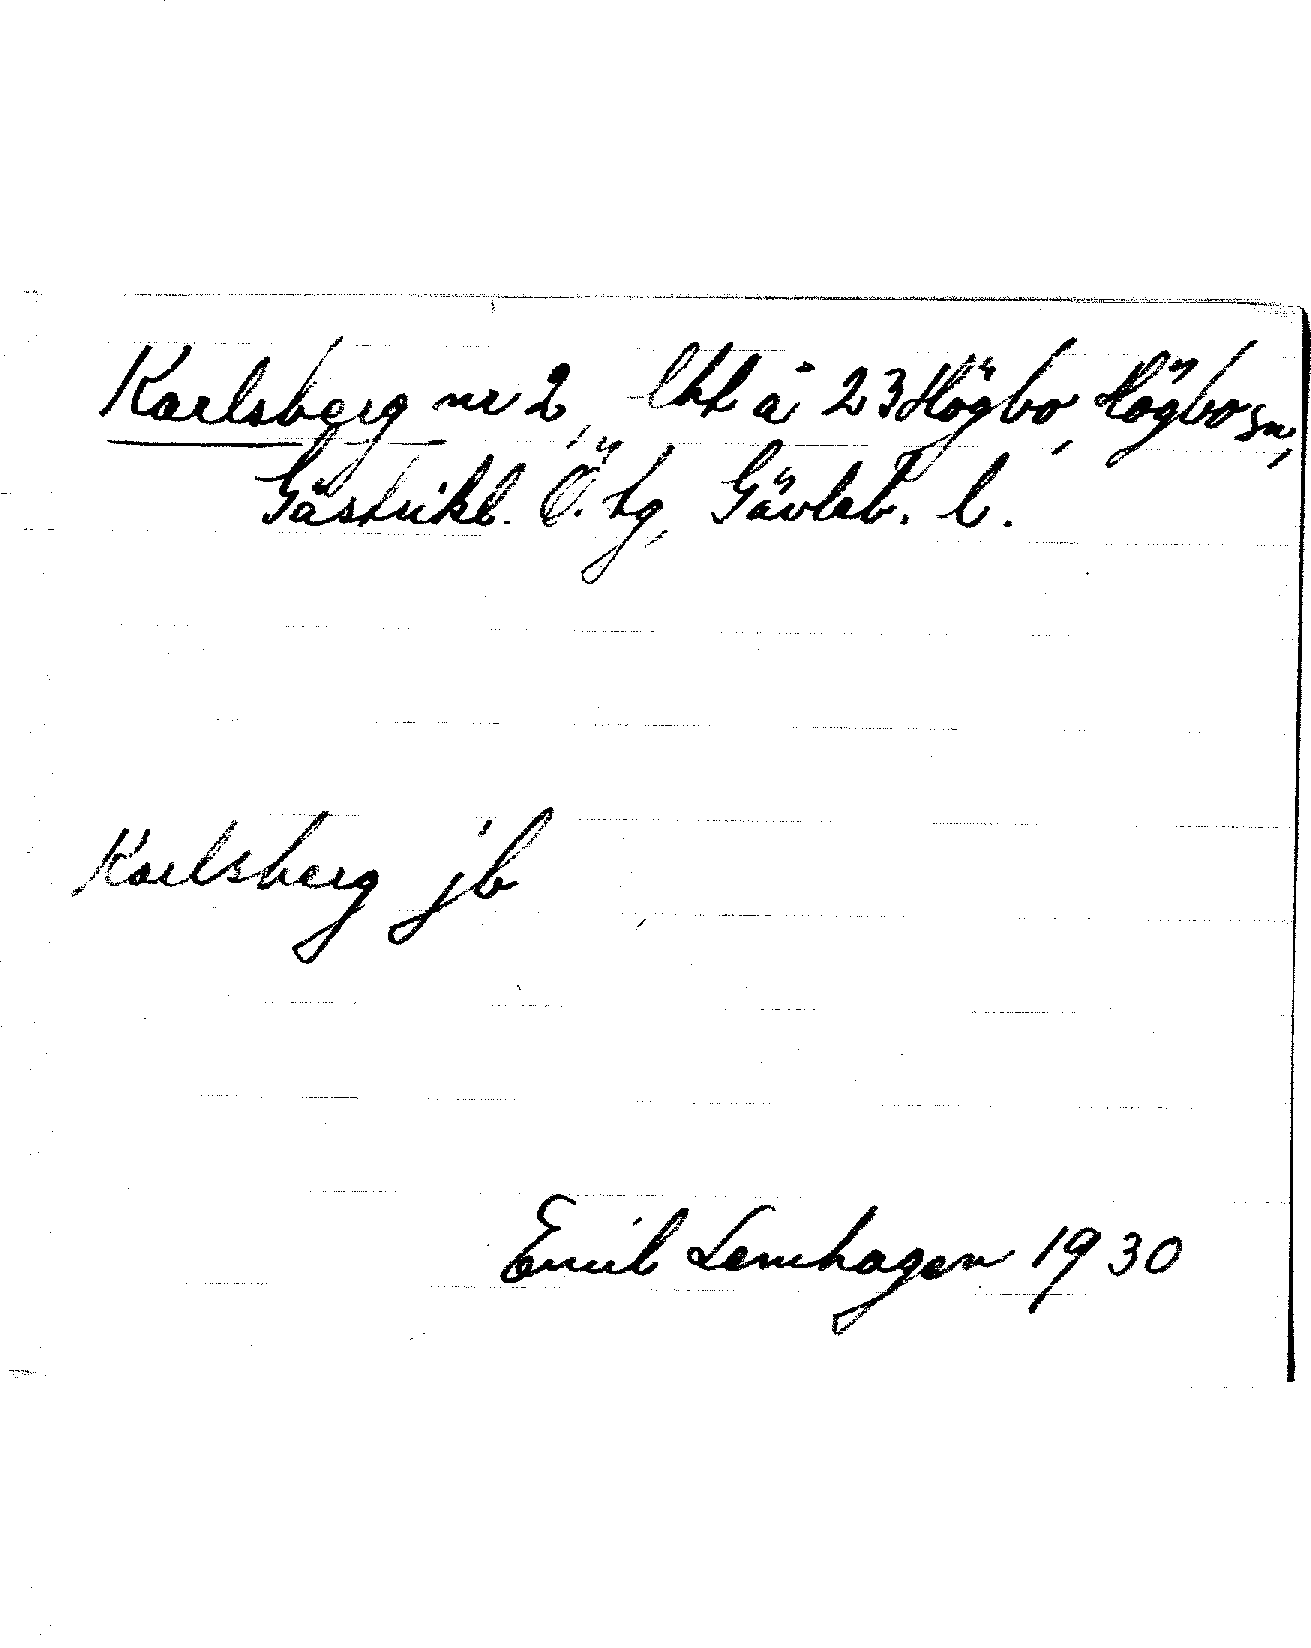 Karlsberg nr 2, lht å 23 Högbo, Högbo sn,
Gästrikl. Ö. tg, Gävleb. l.
Karlsberg jb
Emil Lemhagen 1930